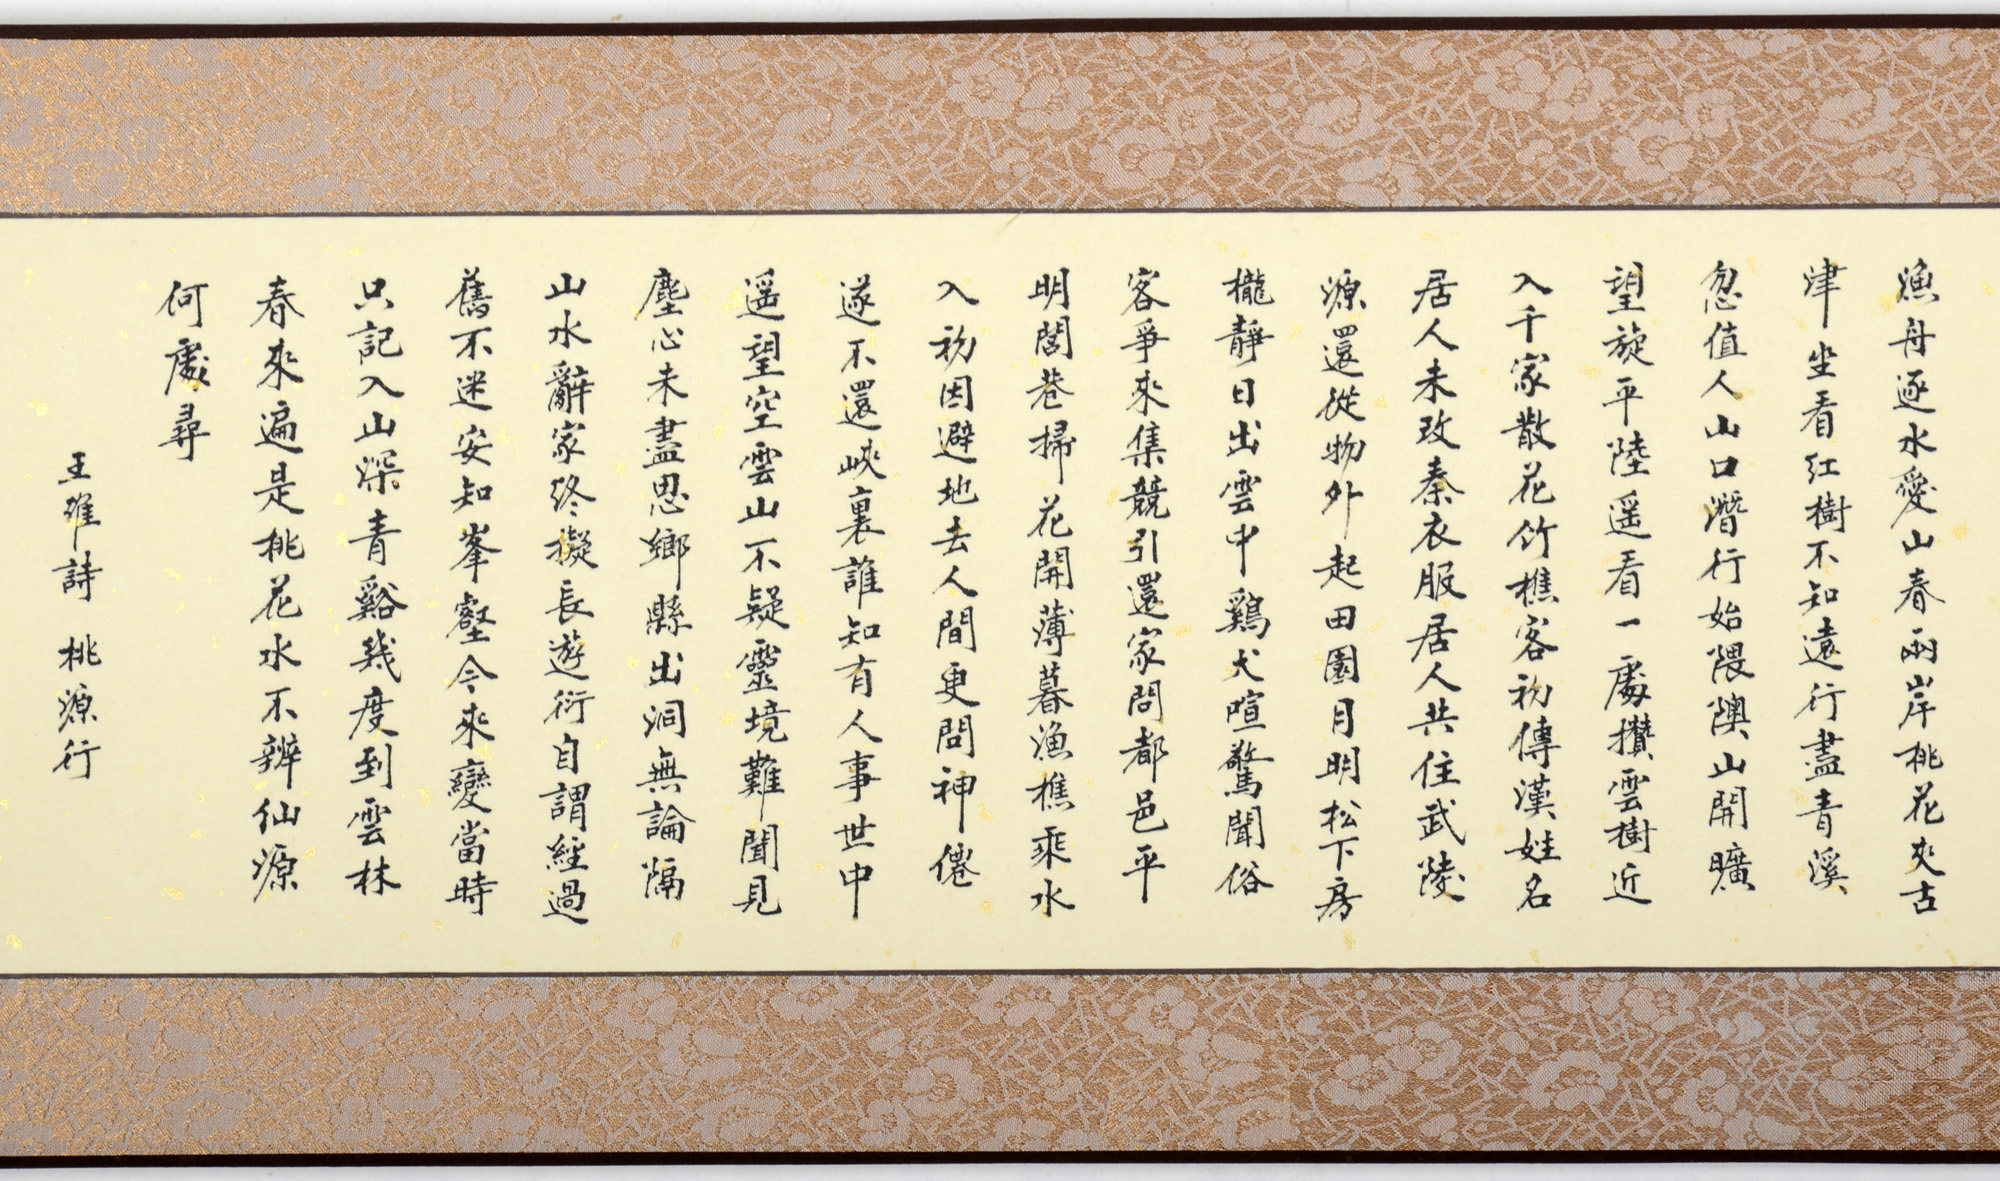 漁舟逐水愛山春兩岸桃花夾古
津坐看紅樹不知遠行盡青溪
忽值人山口潛行始隈隩山開曠
望旋平陸遥看一處攢雲樹近
入千家散花竹樵客初傳漢姓名
居人未改秦衣服居人共住武陵
源還從物外起田園月明松下房
櫳靜日出雲中鷄犬喧驚聞俗
客爭來集競引還家問都邑平
明閭巷掃花開薄暮漁樵乘水
入初因避地去人間更問神僊
遂不還峽裏誰知有人事世中
遥望空雲山不疑靈境難聞見
塵心未盡思鄉縣出洞無論隔
山水辭家終擬長遊衍自謂經過
舊不迷安知峯壑今來變當時
只記入山深青谿幾度到雲林
春來遍是桃花水不辨仙源
何處尋
王維詩 桃源行